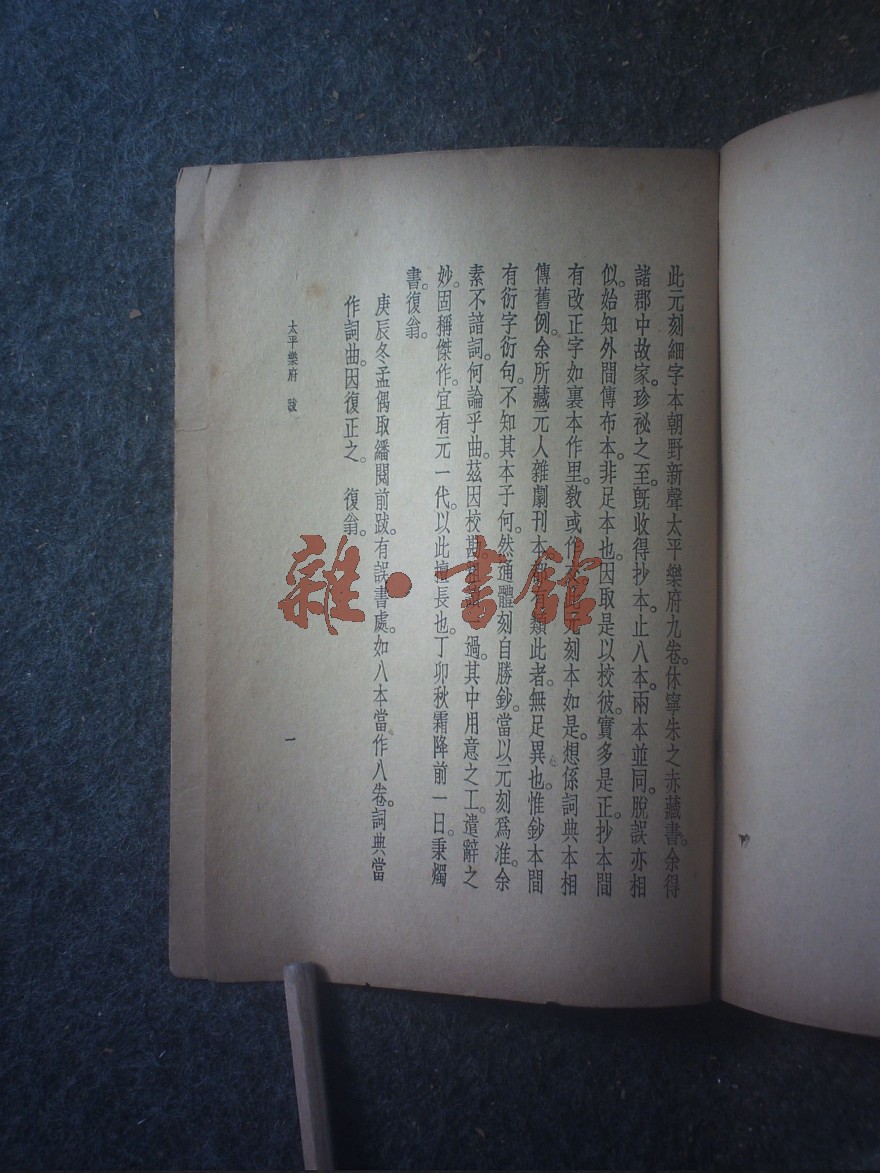 此元刻細字本朝野新聲太平樂府九卷。休寧朱之赤藏書。余得
諸郡中故家。珍祕之至。旣收得抄本。止八本。兩本並同。脫誤亦相
似。始知外間傳布本。非足本也。因取是以校彼。實多是正。抄本間
有改正字如裏本作里。教或作 元刻本如是。想係詞典本相
傳舊例。余所藏元人雜劇刊本 類此者。無足異也。惟鈔本間
有衍字衍句。不知其本子何。然通體刻自勝鈔。當以元刻爲准。余
素不諳詞。何論乎曲。茲因校勘 過。其中用意之工。遣辭之
妙。固稱傑作。宜有元一代。以此擅長也。丁卯秋霜降前一日。秉燭
書。復翁。
庚辰冬孟偶取繙閱前跋。有誤書處。如八本當作八卷。詞典當
作詞曲。因復正之。 復翁。
太平樂府 跋
一
雜·書館